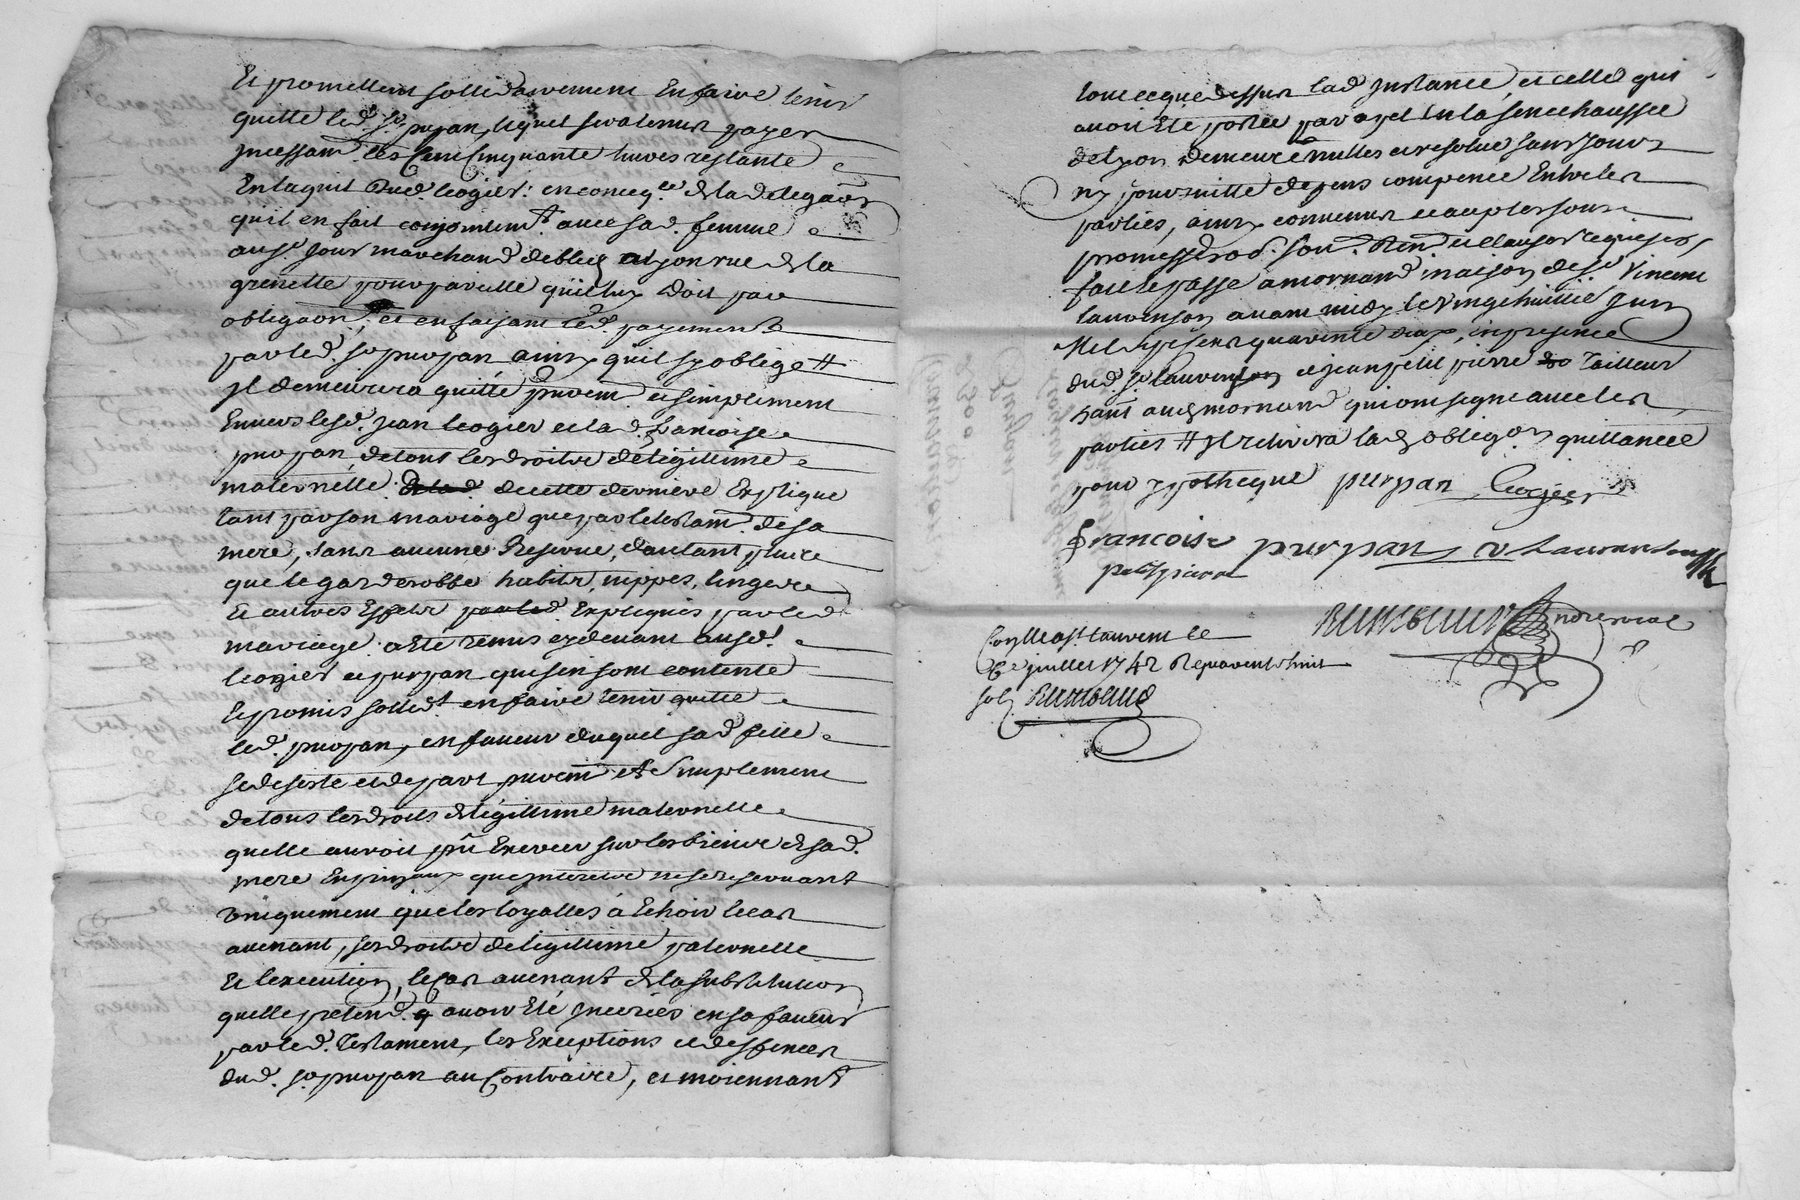 Et promettent sollidairement En faire tenir
quitte led. sr. purpan, lequel sera tenu payer
Incessamt. les Cent Cinquante livres restante
En laquit dud. leogier: en conceqce. de la delegaon
quil en fait conjointemt. avec sad. femme
au sr. Jour marchand de bled a lyon rue de la
grenette pour pareille quil luy doit par
obligaon, et en faisant led. payement
par led. sr. purpan ainsy quil sy oblige #
Il demeurera quitte puremt. et simplement
Envers lesd. jean leogier et lad. francoise
purpan, de tous les droits de legittime
maternelle de cette derniere Explique
tant par son mariage que par le testamt. de sa
mere, sans aucune Reserve, dautant plus
que le garderobbe habits, nippes, linge
Et autres Effets Expliqués par led
mariage. a eté remis cy devant ausd.
leogier et purpan qui sen sont contente
Et promis sollidt. en faire tenir quitte
led. purpan, en faveur duquel sad. fille
se desiste et depart puremt. et Simplement
de tous les droits de legittime maternelle
quelle auroit pû Exercer sur les biens de sad.
mere En principaux que Interets ne se reservant
Uniquement que les loyalles á Echoir le cas
avenant, ses droits de legittime paternelle
Et lexecution, le cas avenant de la substitution
quelle pretend. avoir Eté Inserées en sa faveur
par led. Testament, les Exceptions et deffences
dud. sr. purpan au Contraire, et moiennant
tout ce que dessus lad. Instance, et celle qui
avoit Eté portée par apel En la senechaussee
de lyon demeure nulles et resolue sans Jour
ny poursuitte depens compencé Entre les
parties, ainsy convenu et accepté sous
promesses obd. soud. Rend. et clauses requises,
fait et passé a mornand maison de sr. Vincent
laurenson avant midy le vingt huittie Juin
Mil sept cent quarente deux, en presence
dud. sr. laurenson et jean petit pierre Tailleur
habt. aud mornand qui ont signe avec les
parties # Il retirera lad obligaon quittancée
pour ypotheque purpan Leogier
francoise purpan v Laurenson
petitpierre
Rimbaud Nore royal
Conlle a st. laurent le
6e juillet 1742 R quarente huit
sols Rimbaud